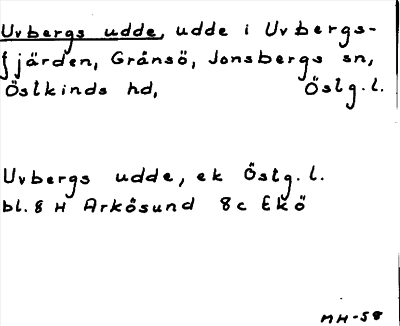 Uvbergs udde, udde i Uvbergs-
fjärden, Gränsö, Jonsbergs sn,
Östkinds hd, Östg.l.
Uvbergs udde, ek Östg.l.
bl. 8 H Arkösund 8c Ekö
MH-58